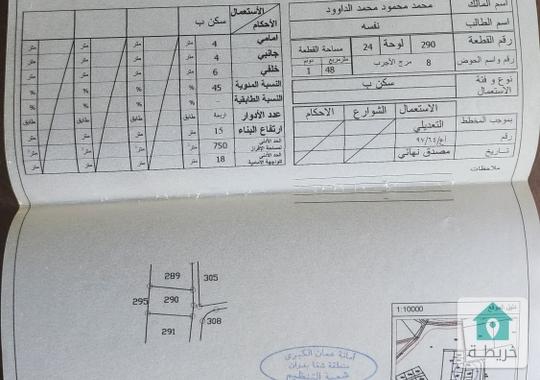 اسم المالك محمد محمود محمد الداوود
اسم الطالب نفسه
رقم القطعة 290 لوحة 24 مساحة القطعة
رقم واسم الحوض 8 مرج الأجرب مترمربع 48 دونم 1
نوع وفئة الاستعمال سكن ب
بموجب المخطط الاستعمال الشوارع الاحكام
التعديلي
رقم
تاريخ مصدق نهائي
ملاحظات
الاستعمال سكن ب
الأحكام
امامي 4 متر متر متر متر
جانبي 4 متر متر متر متر
خلفي 6 متر متر متر متر
النسبة المئوية 45 % % % %
النسبة الطابقية - % % %
عدد الأدوار اربعة طابق طابق طابق
ارتفاع البناء 15 متر متر متر متر
الحد الأدنى لمساحة الإفراز 750
الحد الأدنى للواجهة الأمامية 18 متر متر متر متر
289
305
295
290
308
291
1:10000
دليل الموقع
أمانة عمان الكبرى
منطقة شفا بدران
شعبة التنظيم
خريطة